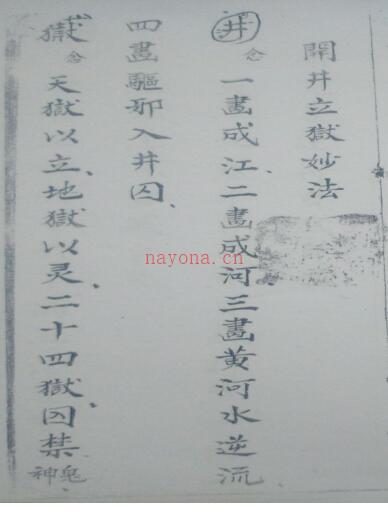 開井立獄妙法
井念一畫成江二畫成河三畫黄河水逆流
四畫驅邪入井囚
獄念天獄以立地獄以灵二十四獄囚禁鬼神
nayona.cn